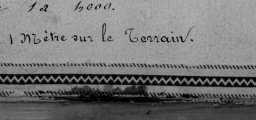 1 à 5000.
1 Mètre sur le Terrain.